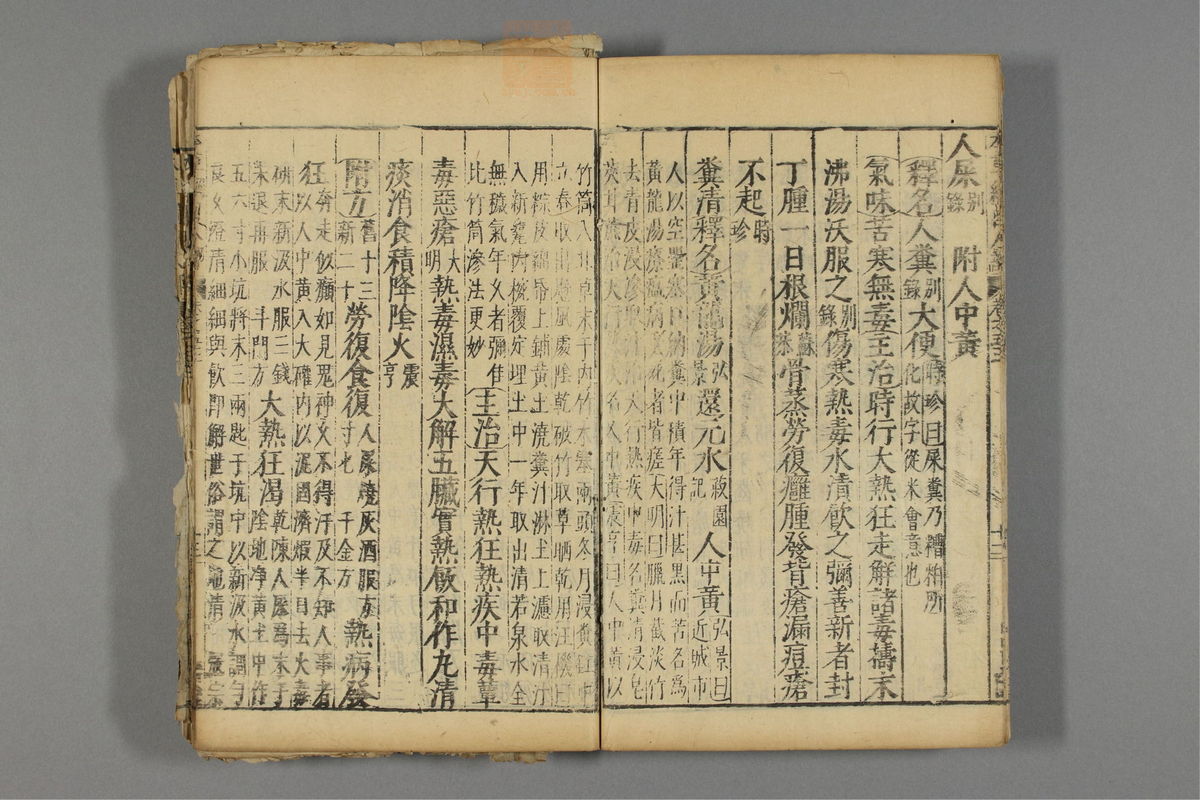 人屎別錄 附人中黃
釋名人糞別錄大便時珍曰屎糞乃糟粕所化故字從米會意也
氣味苦寒無毒主治時行大熱狂走解諸毒擣末
沸湯沃服之別錄傷寒熱毒水漬飲之彌善新者封
丁腫一日根爛蘇恭骨蒸勞復癰腫發背瘡漏痘瘡
不起時珍
糞清釋名黃龍湯弘景還元水菽園記人中黃弘景曰近城市
人以空罌塞口納糞中積年得汁甚黑而苦名為
黃龍湯療溫病垂死者皆瘥大明曰臘月截淡竹
去青皮浸滲取汁治天行熱疾中毒名糞清浸皂
莢甘蔗治天行熱疾名人中黃震亨曰人中黃以
竹筒入甘草末于內竹木塞兩頭冬月浸糞缸中
立春取出懸風處陰乾破竹取草晒乾用汪機曰
用椶皮綿帋上鋪黃土澆糞汁淋土上濾取清汁
入新甕內椀覆定埋土中一年取出清若泉水全
無穢氣年久者彌佳比竹筒滲法更妙
主治天行熱狂熱疾中毒蕈
毒惡瘡大明熱毒濕毒大解五臟實熱飯和作丸清
痰消食積降陰火震亨
附方舊十三新二十勞復食復人屎燒灰酒服方寸匕 千金方熱病發
狂奔走似癲如見鬼神久不得汗及不知人事者
以人中黃入大罐內以泥固濟煆半日去火毒
研末新汲水服三錢
未退再服 斗門方大熱狂渴乾陳人屎為末于陰地净黃土中作
五六寸小坑將末三兩匙于坑中以新汲水調勻
良久澄清細細與飲即解世俗謂之地清